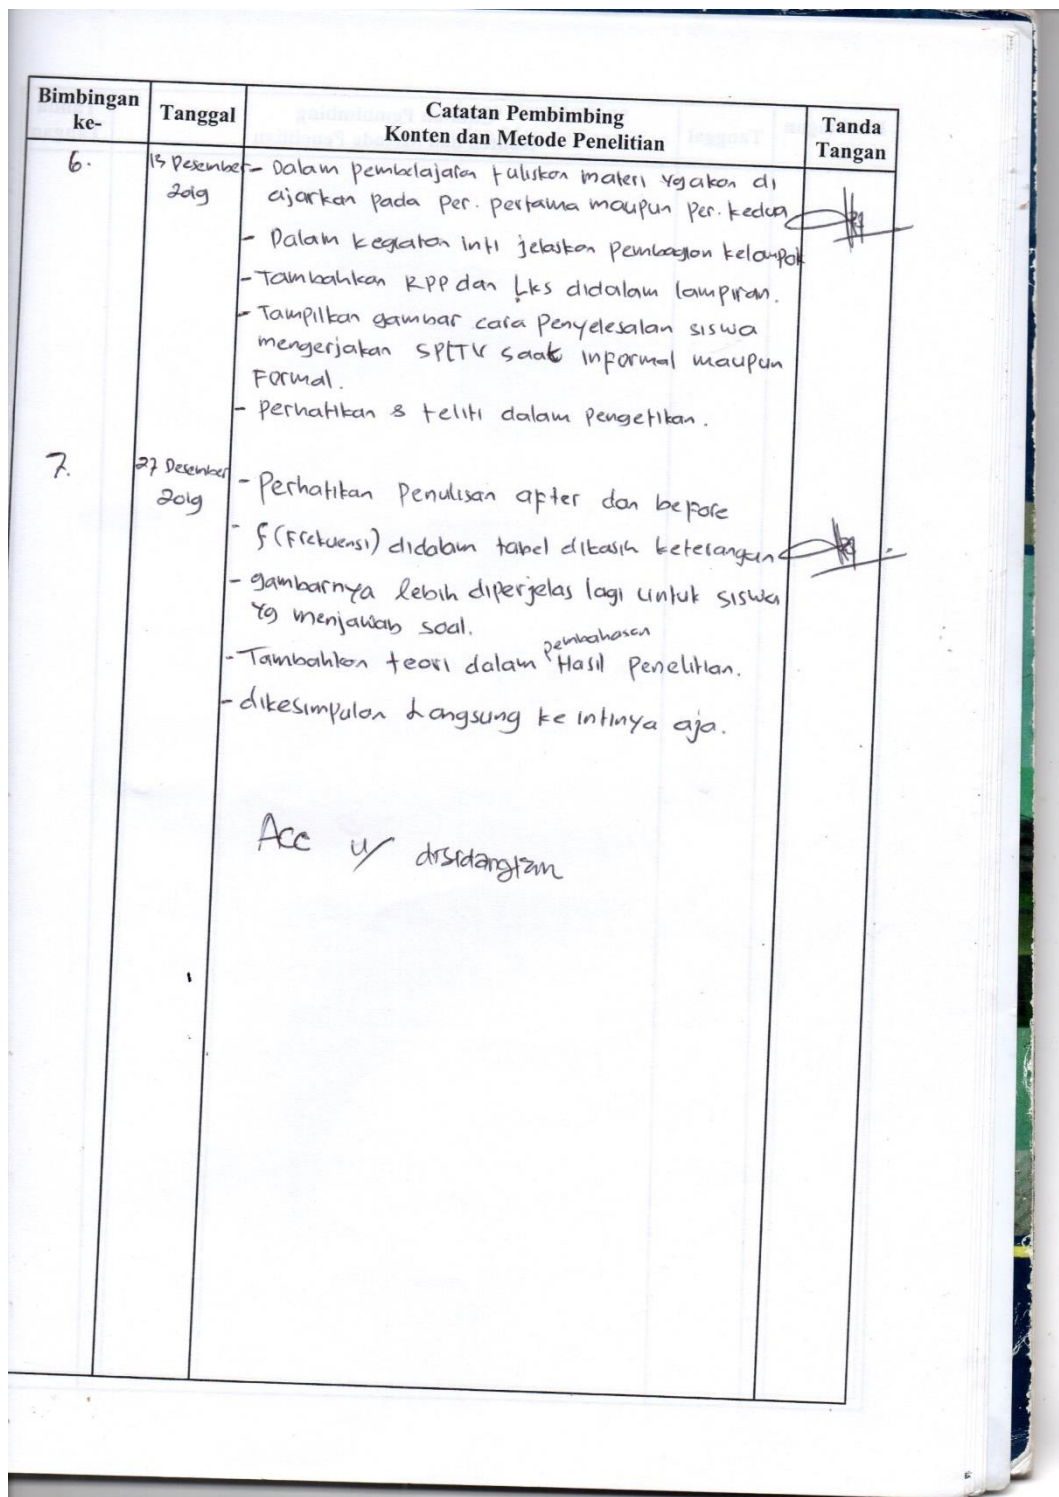 Bimbingan ke-
Tanggal
Catatan Pembimbing
Konten dan Metode Penelitian
Tanda Tangan
6.
13 Desember 2019
- Dalam pembelajaran tuliskan materi yg akan di
ajarkan pada per. pertama maupun per. kedua
- Dalam kegiatan inti jelaskan pembagian kelompok
- Tambahkan RPP dan Lks didalam lampiran.
- Tampilkan gambar cara Penyelesaian siswa
mengerjakan SPLTV saat informal maupun
Formal.
- perhatikan & teliti dalam pengetikan.
7.
27 Desember 2019
- Perhatikan Penulisan after dan before
- f (Frekuensi) didalam tabel dikasih keterangan
- gambarnya lebih diperjelas lagi untuk siswa
yg menjawab soal.
- Tambahkan teori dalam pembahasan Hasil Penelitian.
- dikesimpulan Langsung ke intinya aja.
Acc u/ disidangkan